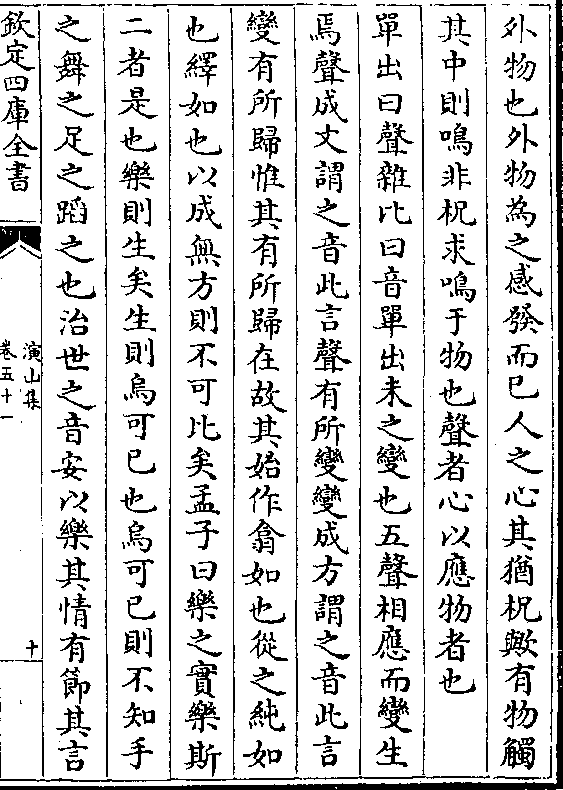 外物也外物為之感發而已人之心其猶柷歟有物觸
其中則鳴非柷求鳴于物也聲者心以應物者也
單出曰聲雜比曰音單出未之變也五聲相應而變生
焉聲成文謂之音此言聲有所變變成方謂之音此言
變有所歸惟其有所歸在故其始作翕如也從之純如
也繹如也以成無方則不可比矣孟子曰樂之實樂斯
二者是也樂則生矣生則烏可已也烏可已則不知手
之舞之足之蹈之也治世之音安以樂其情有節其言
欽定四庫全書
演山集
卷五十一
十